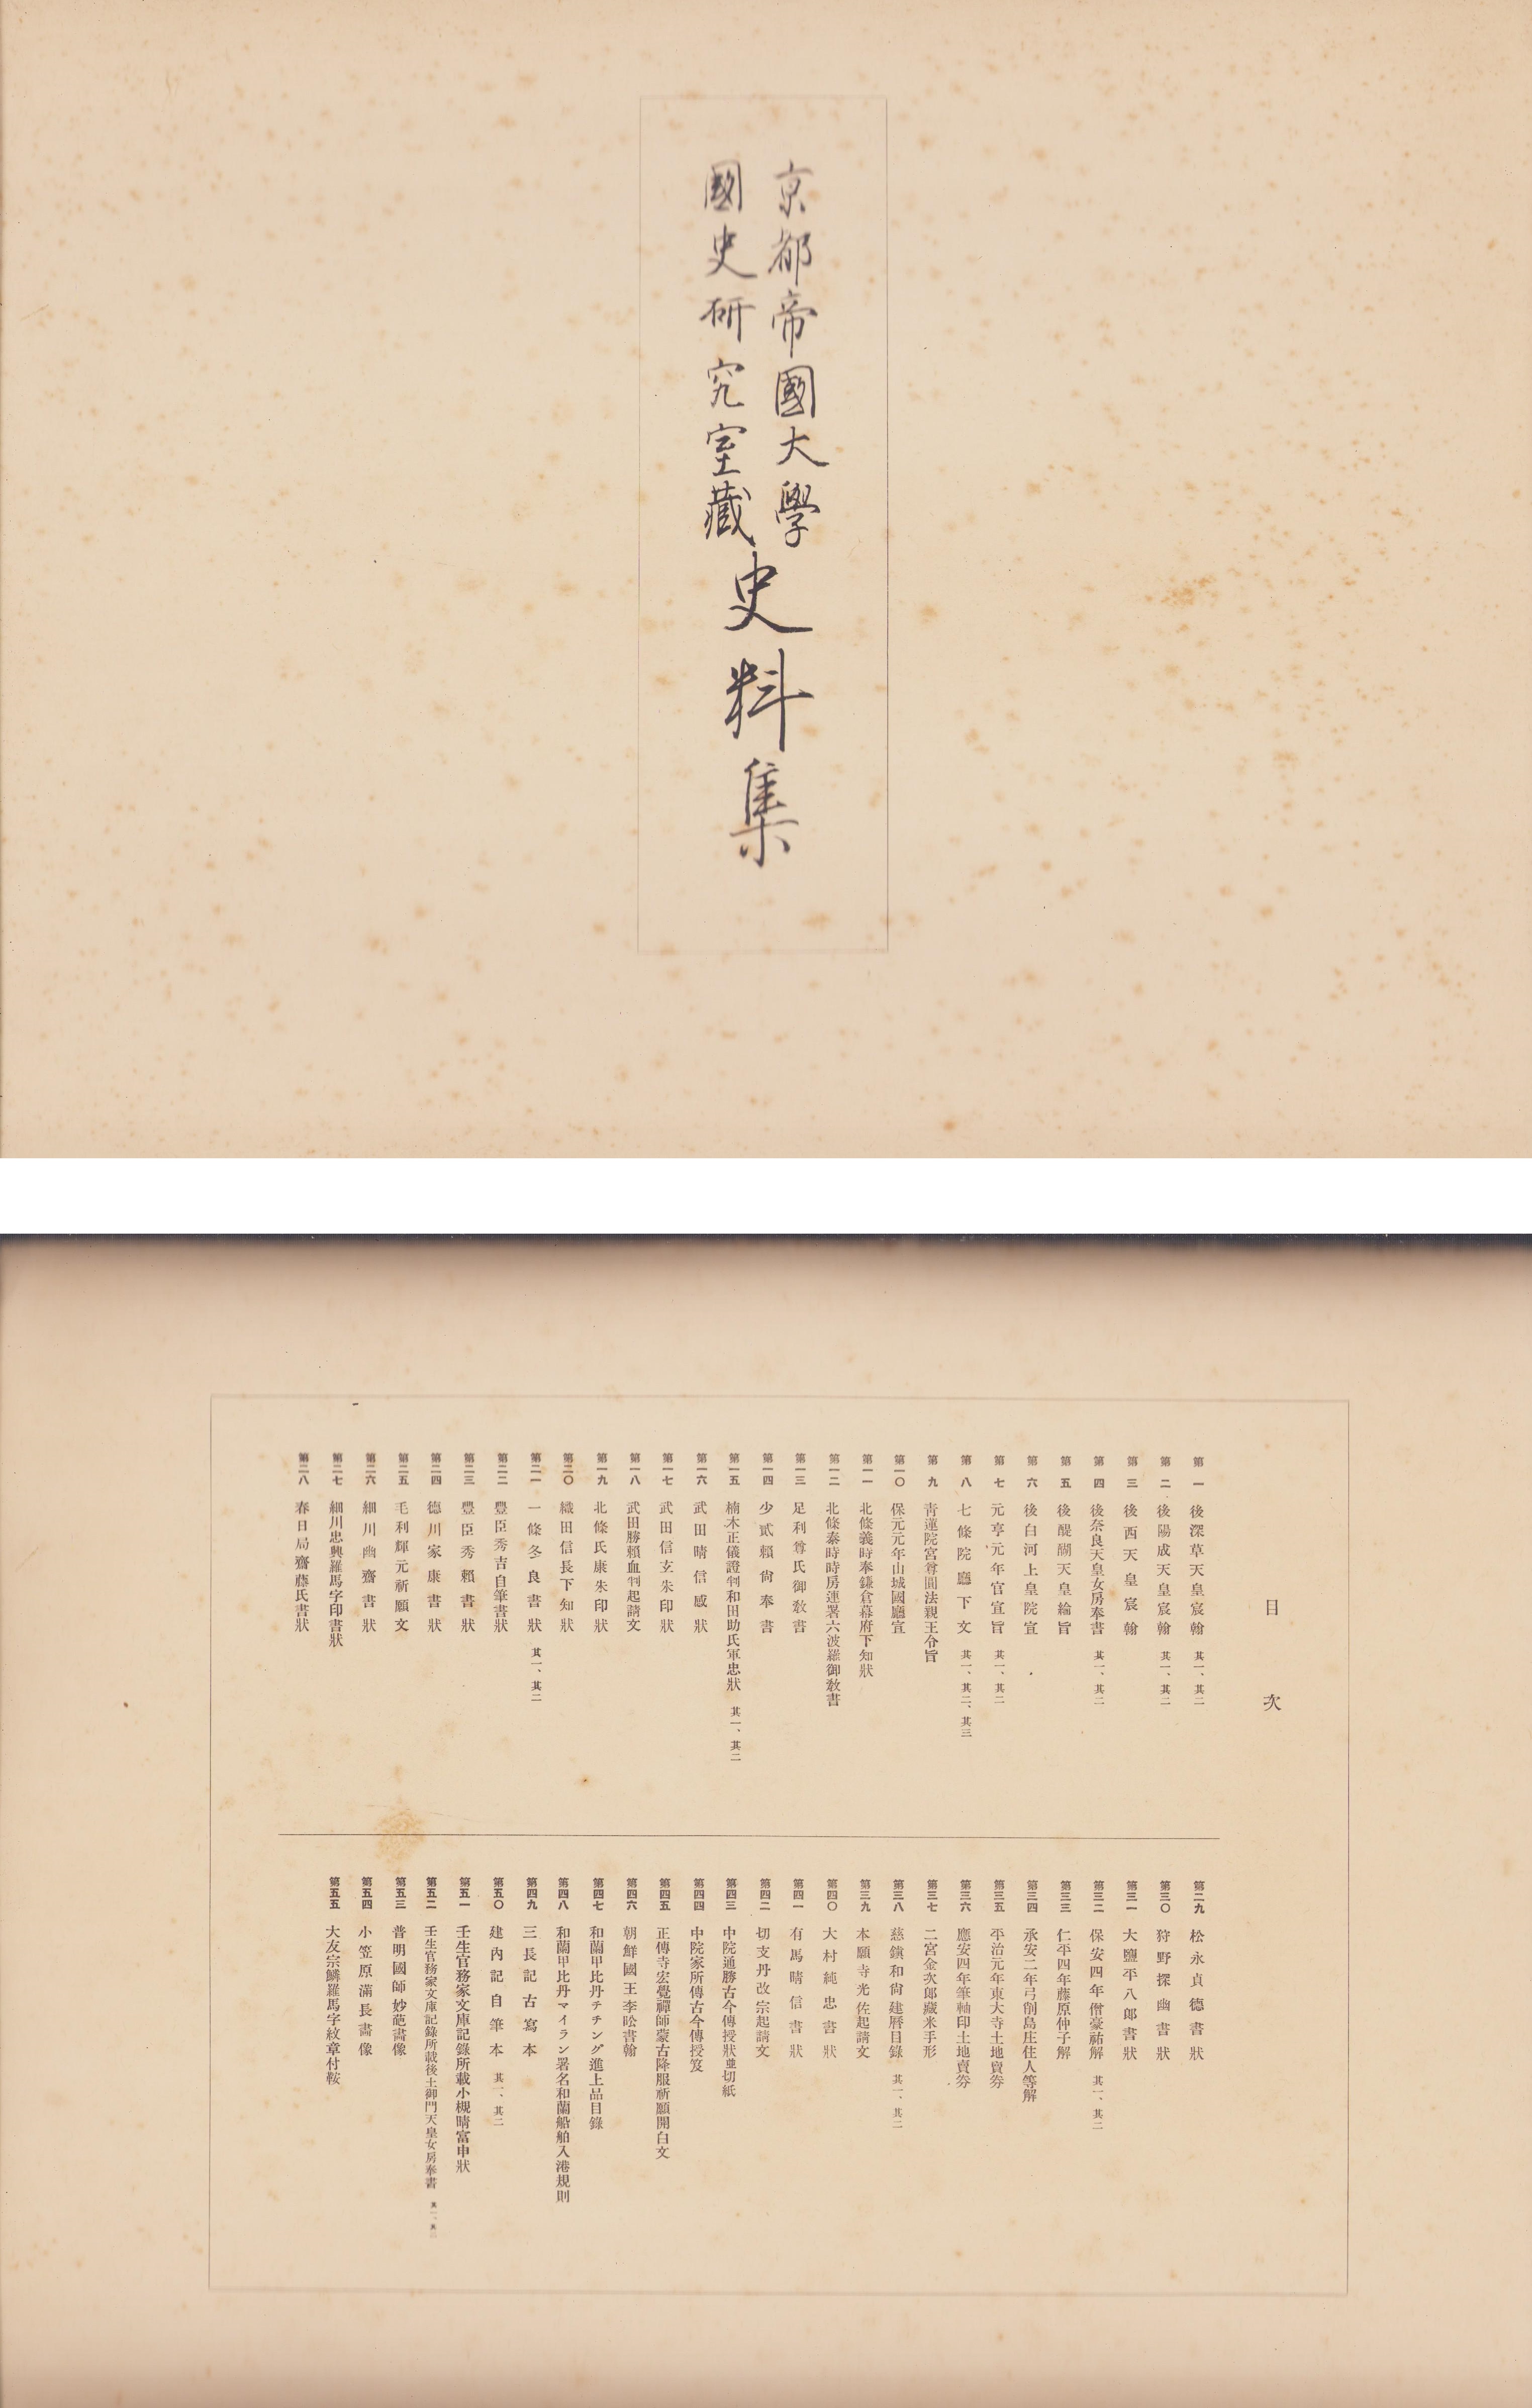 京都帝國大學
國史研究室藏
史料集
目次
第一 後深草天皇宸翰 其一、其二
第二 後陽成天皇宸翰 其一、其二
第三 後西天皇宸翰
第四 後奈良天皇女房奉書 其一、其二
第五 後醍醐天皇綸旨
第六 後白河上皇院宣
第七 元亨元年官宣旨 其一、其二
第八 七條院廳下文 其一、其二、其三
第九 靑蓮院宮尊圓法親王令旨
第一〇 保元元年山城國廳宣
第一一 北條義時奉鎌倉幕府下知狀
第一二 北條泰時時房連署六波羅御敎書
第一三 足利尊氏御敎書
第一四 少貳賴尙奉書
第一五 楠木正儀證判和田助氏軍忠狀 其一、其二
第一六 武田晴信感狀
第一七 武田信玄朱印狀
第一八 武田勝賴血判起請文
第一九 北條氏康朱印狀
第二〇 織田信長下知狀
第二一 一條冬良書狀 其一、其二
第二二 豐臣秀吉自筆書狀
第二三 豐臣秀賴書狀
第二四 德川家康書狀
第二五 毛利輝元祈願文
第二六 細川幽齋書狀
第二七 細川忠興羅馬字印書狀
第二八 春日局齋藤氏書狀
第二九 松永貞德書狀
第三〇 狩野探幽書狀
第三一 大鹽平八郎書狀
第三二 保安四年僧豪祐解 其一、其二
第三三 仁平四年藤原仲子解
第三四 承安二年弓削島庄住人等解
第三五 平治元年東大寺土地賣券
第三六 應安四年筆軸印土地賣券
第三七 二宮金次郎藏米手形
第三八 慈鎭和尙建曆目錄 其一、其二
第三九 本願寺光佐起請文
第四〇 大村純忠書狀
第四一 有馬晴信書狀
第四二 切支丹改宗起請文
第四三 中院通勝古今傳授狀並切紙
第四四 中院家所傳古今傳授笈
第四五 正傳寺宏覺禪師蒙古降服祈願開白文
第四六 朝鮮國王李昖書翰
第四七 和蘭甲比丹チチング進上品目錄
第四八 和蘭甲比丹マイラン署名和蘭船舶入港規則
第四九 三長記古寫本
第五〇 建內記自筆本 其一、其二
第五一 壬生官務家文庫記錄所載小槻晴富申狀
第五二 壬生官務家文庫記錄所載後土御門天皇女房奉書 其一、其二
第五三 普明國師妙葩畵像
第五四 小笠原滿長畵像
第五五 大友宗鱗羅馬字紋章付鞍